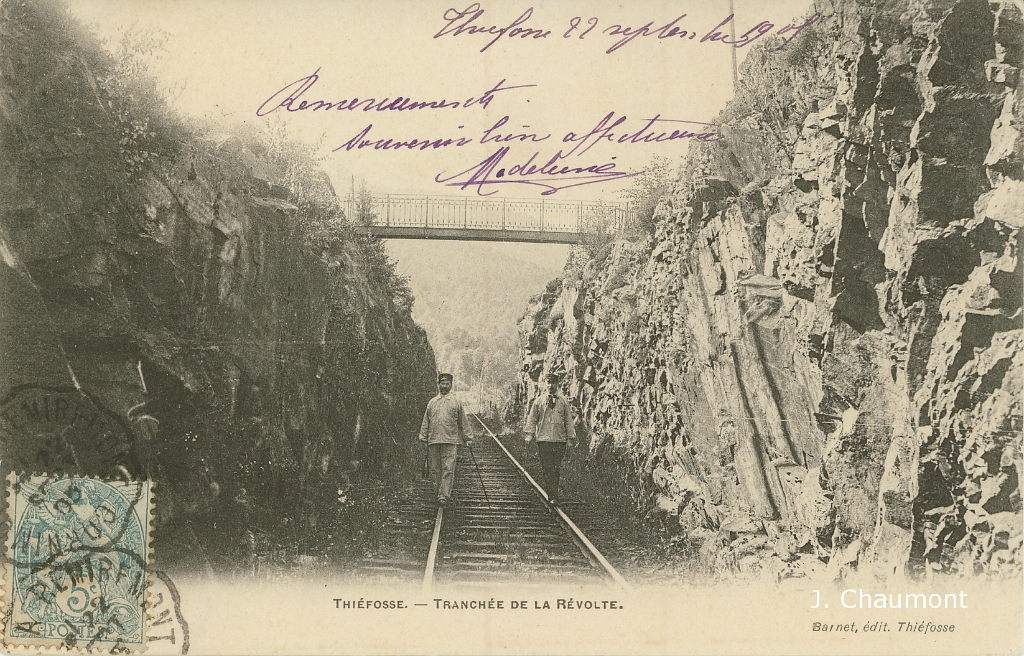 Thiéfosse 22 septembre 1905
Remerciements
souvenir bien affectueux
Madeleine
CORNI
REMIREMONT
5c
22
POSTE
THIÉFOSSE. — TRANCHÉE DE LA RÉVOLTE.
J. Chaumont
Barnet, édit. Thiéfosse